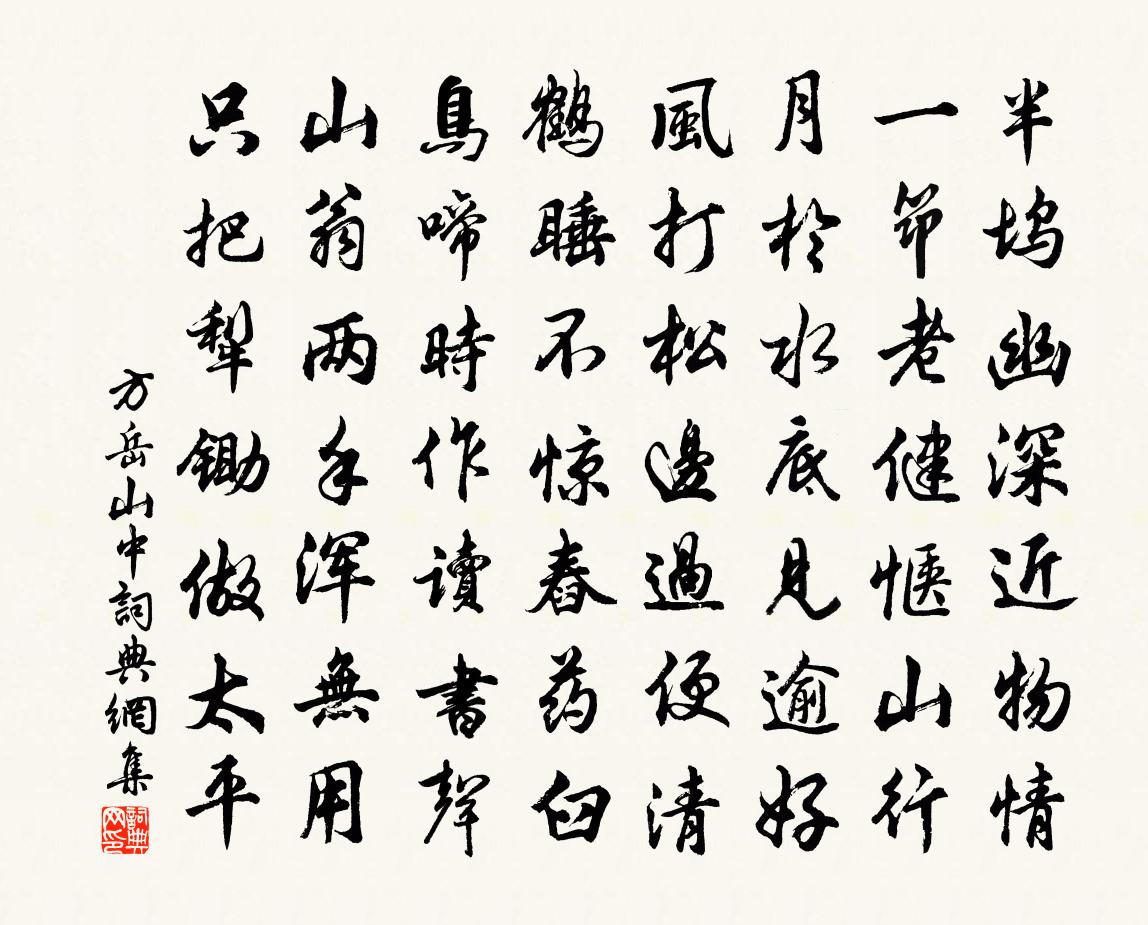 半塢幽深近物情
一筇老健愜山行
月於水底見逾好
風打松邊過便清
鶴睡不惊舂药臼
鳥啼時作讀書聲
山翁两手渾無用
只把犁鋤做太平
方岳山中詞典網集
詞典网印